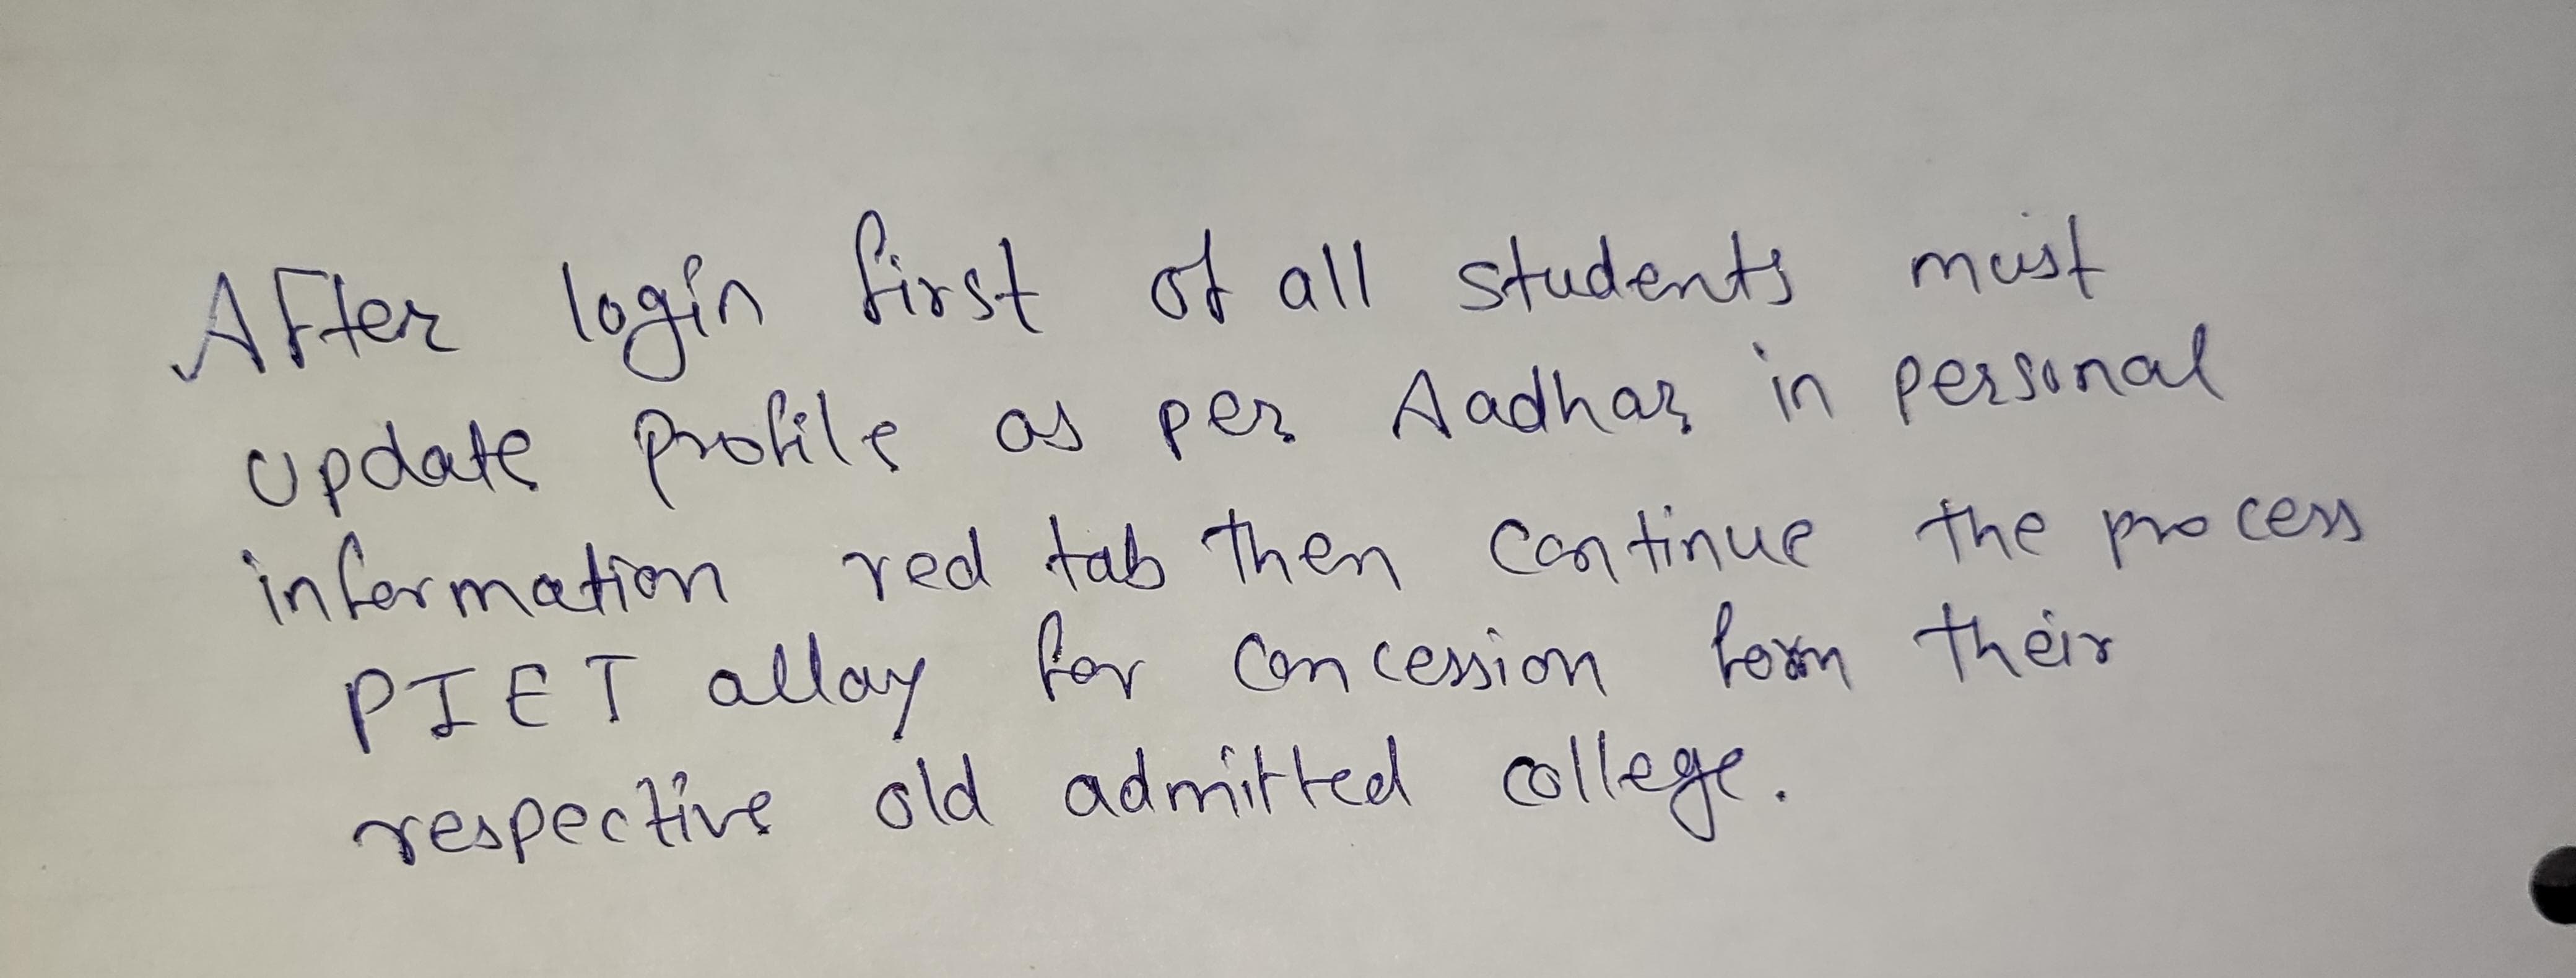 After login first of all students must
update profile as per Aadhar in personal
information red tab then continue the process
PIET allay for concession form their
respective old admitted college.